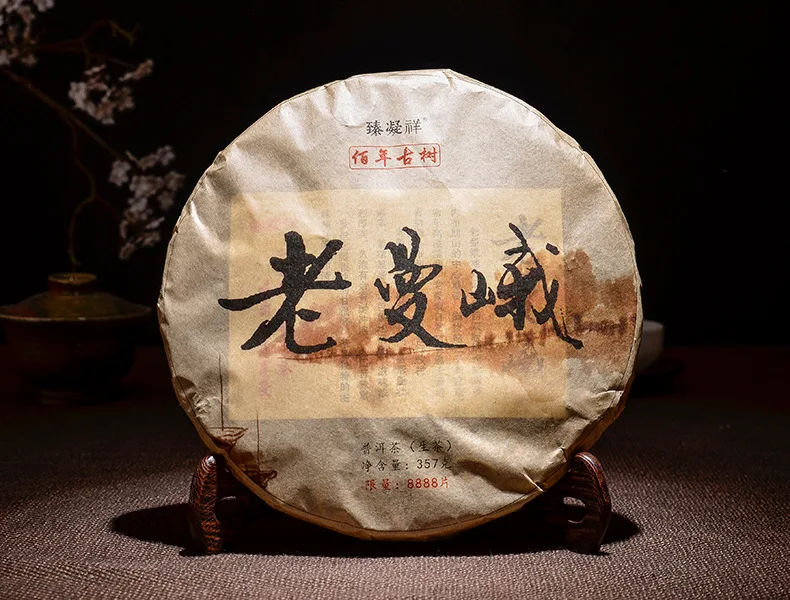 臻凝祥®
佰年古树
老曼峨
普洱茶（生茶）
净含量：357克
限量：8888片